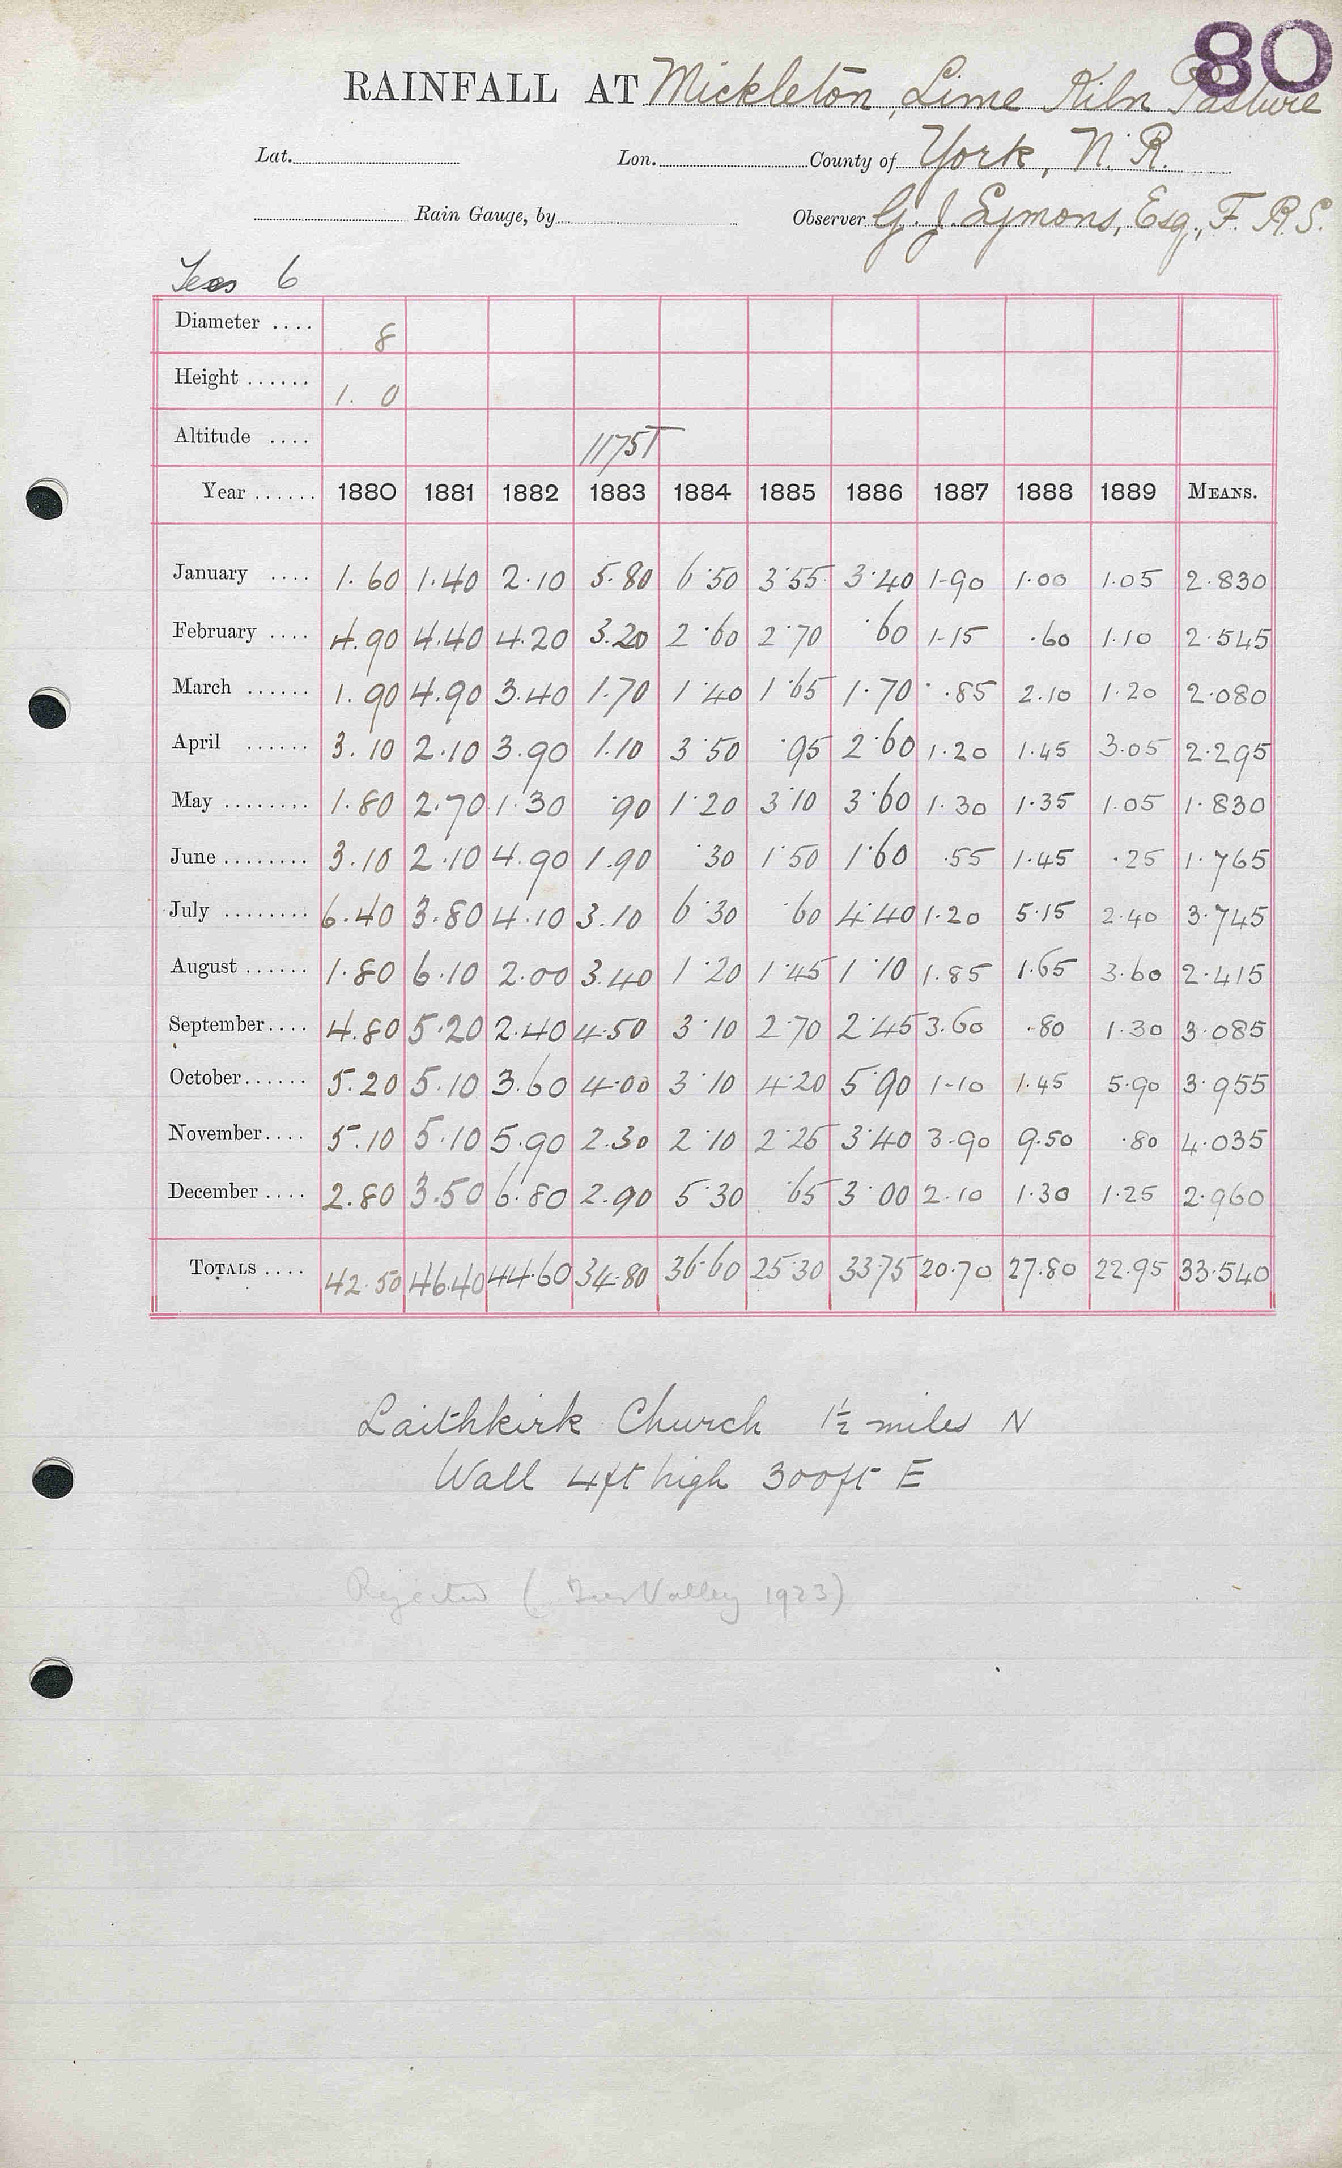 80
RAINFALL AT Mickleton, Lime Kiln Pasture
Lat. Lon. County of York, N. R.
Rain Gauge, by Observer G. J. Symons, Esq., F. R. S.
Tees 6
Diameter .... 8
Height ...... 1. 0
Altitude .... 1175T
Year ...... 1880 1881 1882 1883 1884 1885 1886 1887 1888 1889 MEANS.
January .... 1.60 1.40 2.10 5.80 6.50 3.55 3.40 1.90 1.00 1.05 2.830
February .... 4.90 4.40 4.20 3.20 2.60 2.70 .60 1.15 .60 1.10 2.545
March ...... 1.90 4.90 3.40 1.70 1.40 1.65 1.70 .85 2.10 1.20 2.080
April ...... 3.10 2.10 3.90 1.10 3.50 .95 2.60 1.20 1.45 3.05 2.295
May ........ 1.80 2.70 1.30 .90 1.20 3.10 3.60 1.30 1.35 1.05 1.830
June ........ 3.10 2.10 4.90 1.90 .30 1.50 1.60 .55 1.45 .25 1.765
July ........ 6.40 3.80 4.10 3.10 6.30 .60 4.40 1.20 5.15 2.40 3.745
August ...... 1.80 6.10 2.00 3.40 1.20 1.45 1.10 1.85 1.65 3.60 2.415
September .... 4.80 5.20 2.40 4.50 3.10 2.70 2.45 3.60 .80 1.30 3.085
October ...... 5.20 5.10 3.60 4.00 3.10 4.20 5.90 1.10 1.45 5.90 3.955
November .... 5.10 5.10 5.90 2.30 2.10 2.25 3.40 3.90 9.50 .80 4.035
December .... 2.80 3.50 6.80 2.90 5.30 .65 3.00 2.10 1.30 1.25 2.960
TOTALS .... 42.50 46.40 44.60 34.80 36.60 25.30 33.75 20.70 27.80 22.95 33.540
Laithkirk Church 1½ miles N
Wall 4ft high 300ft E
Rejected ( Tees Valley 1923)